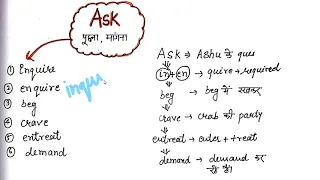 Ask
पूछना, मांगना
① Enquire
② enquire inqui
③ beg
④ crave
⑤ entreat
⑥ demand
Ask → Ashu के ques
in + en → quire → required
beg → beg में
crave → crab की party
entreat → + treat
demand → demand कर
रहे हैं।